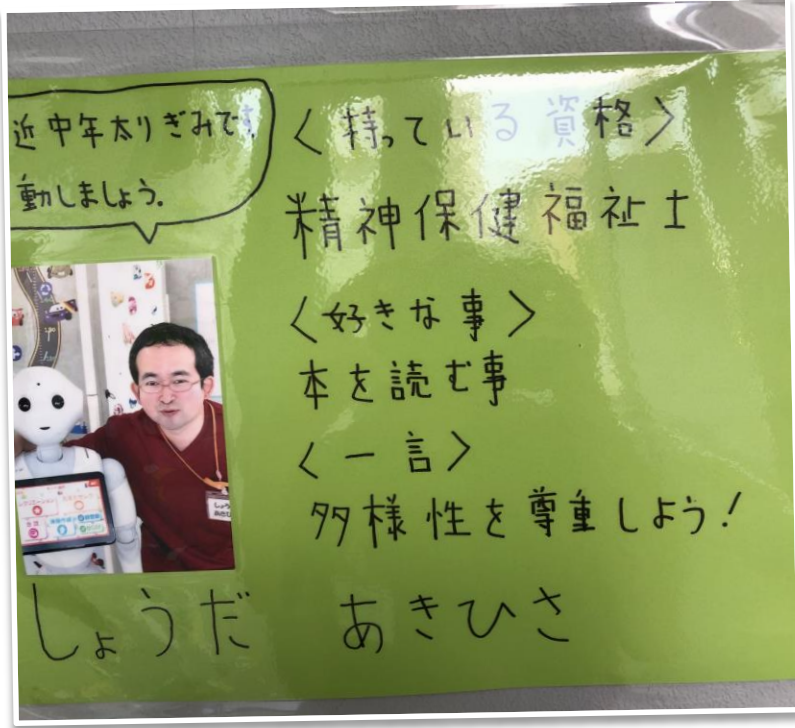 近中年太りぎみです。
動しましょう。
〈持っている資格〉
精神保健福祉士
〈好きな事〉
本を読む事
〈一言〉
多様性を尊重しよう!
しょうだ あきひさ